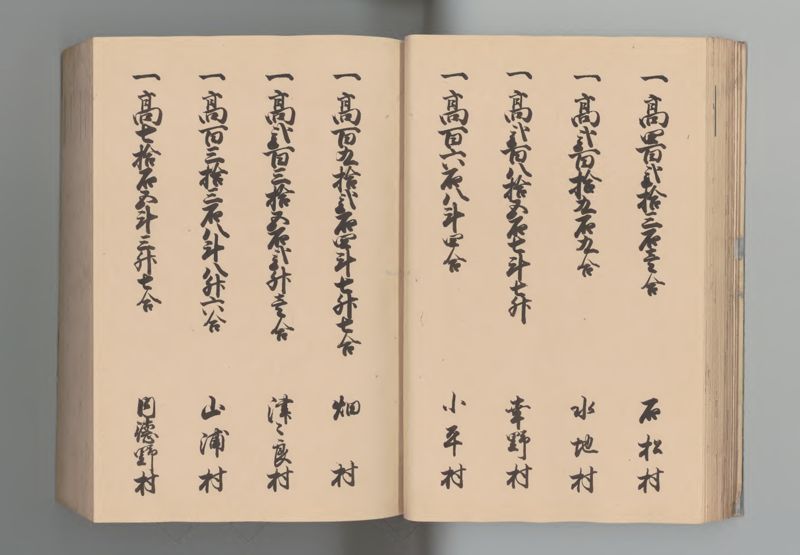 一高四百弐拾三石壱合 石松村
一高弐百拾九石九合 水地村
一高弐百八拾五石七斗七升 幸野村
一高百六石八斗四合 小平村
一高百九拾弐石四斗七升七合 畑村
一高弐百三拾五石弐升壱合 津々良村
一高百三拾三石八斗八升六合 山浦村
一高七拾石五斗三升七合 田野村